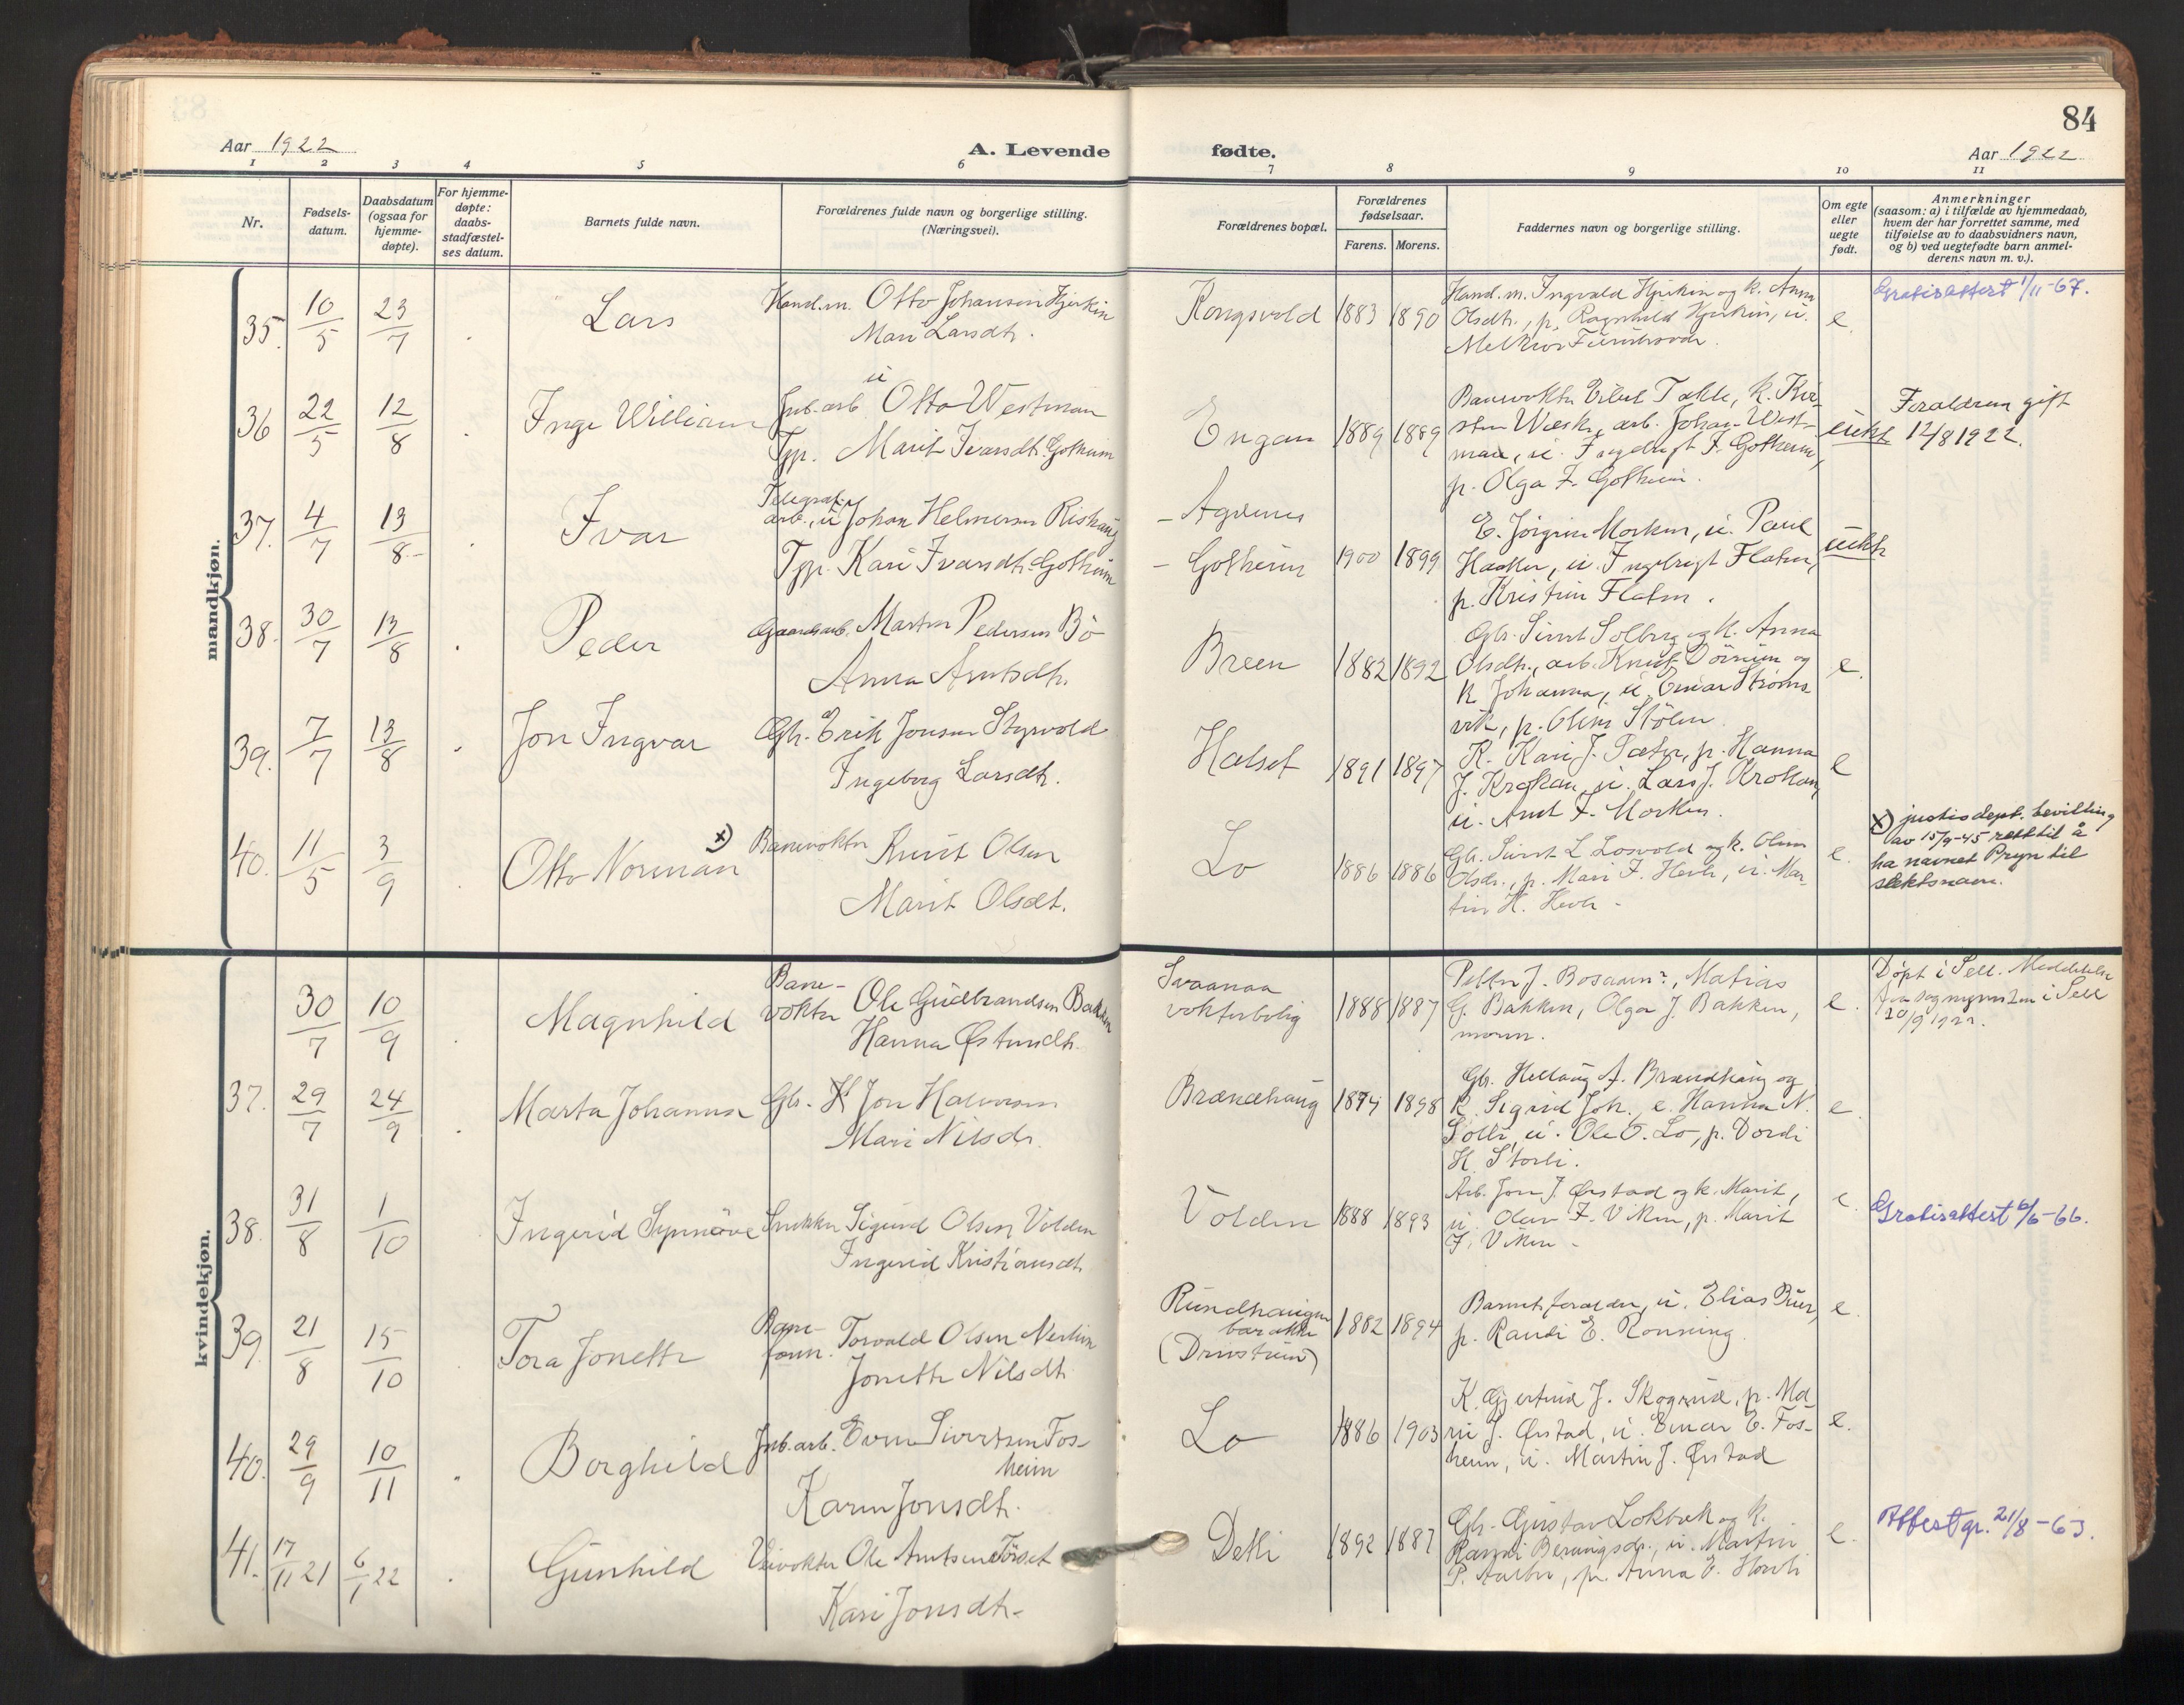 84
Aar 1922
A. Levende fødte.
Aar 1922
1 2 3 4 5 6 7 8 9 10 11
Nr.
Fødsels-
datum.
Daabsdatum
(ogsaa for
hjemme-
døpte).
For hjemme-
døpte:
daabs-
stadfæstel-
ses datum.
Barnets fulde navn.
Forældrenes fulde navn og borgerlige stilling.
(Næringsvei).
Forældrenes bopæl.
Forældrenes
fødselsaar.
Farens. Morens.
Faddernes navn og borgerlige stilling.
Om egte
eller
uegte
født.
Anmerkninger
(saasom: a) i tilfælde av hjemmedaab,
hvem der har forrettet samme, med
tilføielse av to daabsvidners navn,
og b) ved uegtefødte barn anmel-
derens navn m. v.).
mandkjøn.
35. 10/5 23/7 Lars
Hand.m. Otto Johansen Hjerkin
Mari Larsdtr.
Kongsvold 1883 1890
Hand.m. Ingvald Hjerkin og k. Anna
Olsdtr., p. Ragnhild Hjerkin, u.
Melkior
e.
Gratisattest 1/11-67.
36 22/5 12/8 Inge William
Jnb.arb. u Otto Westman
Tjp. Marit Ivarsdtr. Gotheim
Engan 1889 1889
Banevokter Eilert Takle, k. Kir-
sten arb. Johan West-
man, u. Ingebrigt I. Gotheim,
p. Olga I. Gotheim.
uekt
Foreldrene gift
12/8 1922.
37. 4/7 13/8 Ivar
Telegraf-
arb., u Johan Helmersen Rishaug
Tjp. Kari Ivarsdtr. Gotheim
- Agdenes
- Gotheim 1900 1899
E. Jørgine Morken, u. Paul
Hasker, u. Ingebrigt Flaten,
p. Kristine Flaten.
uekt
38. 30/7 13/8 Peder
Gaardsarb. Martin Pedersen Bö
Anna Arntsdtr.
Breen 1882 1892
Gbr. Sivert Solberg og k. Anna
Olsdtr., arb. Knut og
k Johanna, u. Einar Ströms-
vik, p. Oline Stölen.
e.
39. 7/7 13/8 Jon Ingvar
Gbr. Erik Jonsen Styrvold
Ingeborg Larsdtr.
Halset 1891 1897
K. Kari J. Sæter, p. Hanna
J. Krokan, u. Lars J. Krokan,
u. Arnt I. Morken.
e
40. 11/5 3/9 Otto Norman x)
Banevokter Knut Olsen
Marit Olsdt.
Lo 1886 1886
Gbr. Sivert L Losvold og k. Oline
Olsdr., p. Mari I. Hevle, u. Mar-
tin H. Hevle -
e.
x) justisdept. bevilling
av 15/9-45 rett til å
ha navnet Pryn til
slektsnavn.
kvindekjøn.
30/7 10/9 Magnhild
Bane-
vokter Ole Gudbrandsen Bakken
Hanna Østensdtr.
Svaanaa
vokterbolig 1888 1887
Petter J. Bosaum?, Matias
G. Bakken, Olga J. Bakken,
moren.
e.
Døpt i Sell. Meddelelse
fra sognepresten i Sell
20/9 1922.
37. 29/7 24/9 Marta Johanna
Gbr. Jon Halvorsen
Mari Nilsdr.
Brændhaug 1874 1898
Gbr. Hellaug A. Brændhaug og
k. Sigrid Joh., e. Hanna N.
u. Ole O. Lo, p. Dordi
H. Storli.
e.
38. 31/8 1/10 Ingerid Synnöve
Snekker Sigurd Olsen Volden
Ingerid Kristiansdtr
Volden 1888 1893
Arb. Jon J. Ørstad og k. Marit,
u. Olav I. Viken, p. Marit
I. Viken -
e.
Gratisattest 6/6-66.
39. 21/8 15/10 Tora Jonette
Bane-
form. Torvald Olsen
Jonette Nilsdt.
Rundhaugen
barakke
(Drivstuen) 1882 1894
Barnets foreldre, u. Elias
p. Randi E. Rönning
e.
40. 29/9 10/11 Borghild
Jnb.arb. Even Sivertsen Fos-
heim
Karen Jonsdtr.
Lo 1886 1903
K. Gjertrud J. Skogrud, p. Ma-
rie J. Ørstad, u. Einar E. Fos-
heim, u. Martin J. Ørstad
e.
41. 17/11 21 6/1 22 Gunhild
Veivokter Ole Arntsen Törset
Kari Jonsdtr.
Detli 1892 1887
Gbr. Gustav Lokbæk og k.
Randi u. Martin
P. p. Anna E.
e.
Attest gr. 21/8-63.